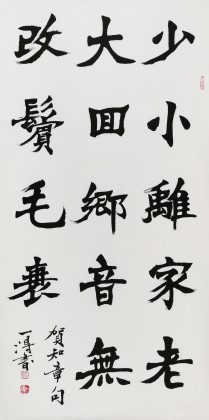 少小離家老
大回鄉音無
改鬢毛衰
賀知章句
一 書